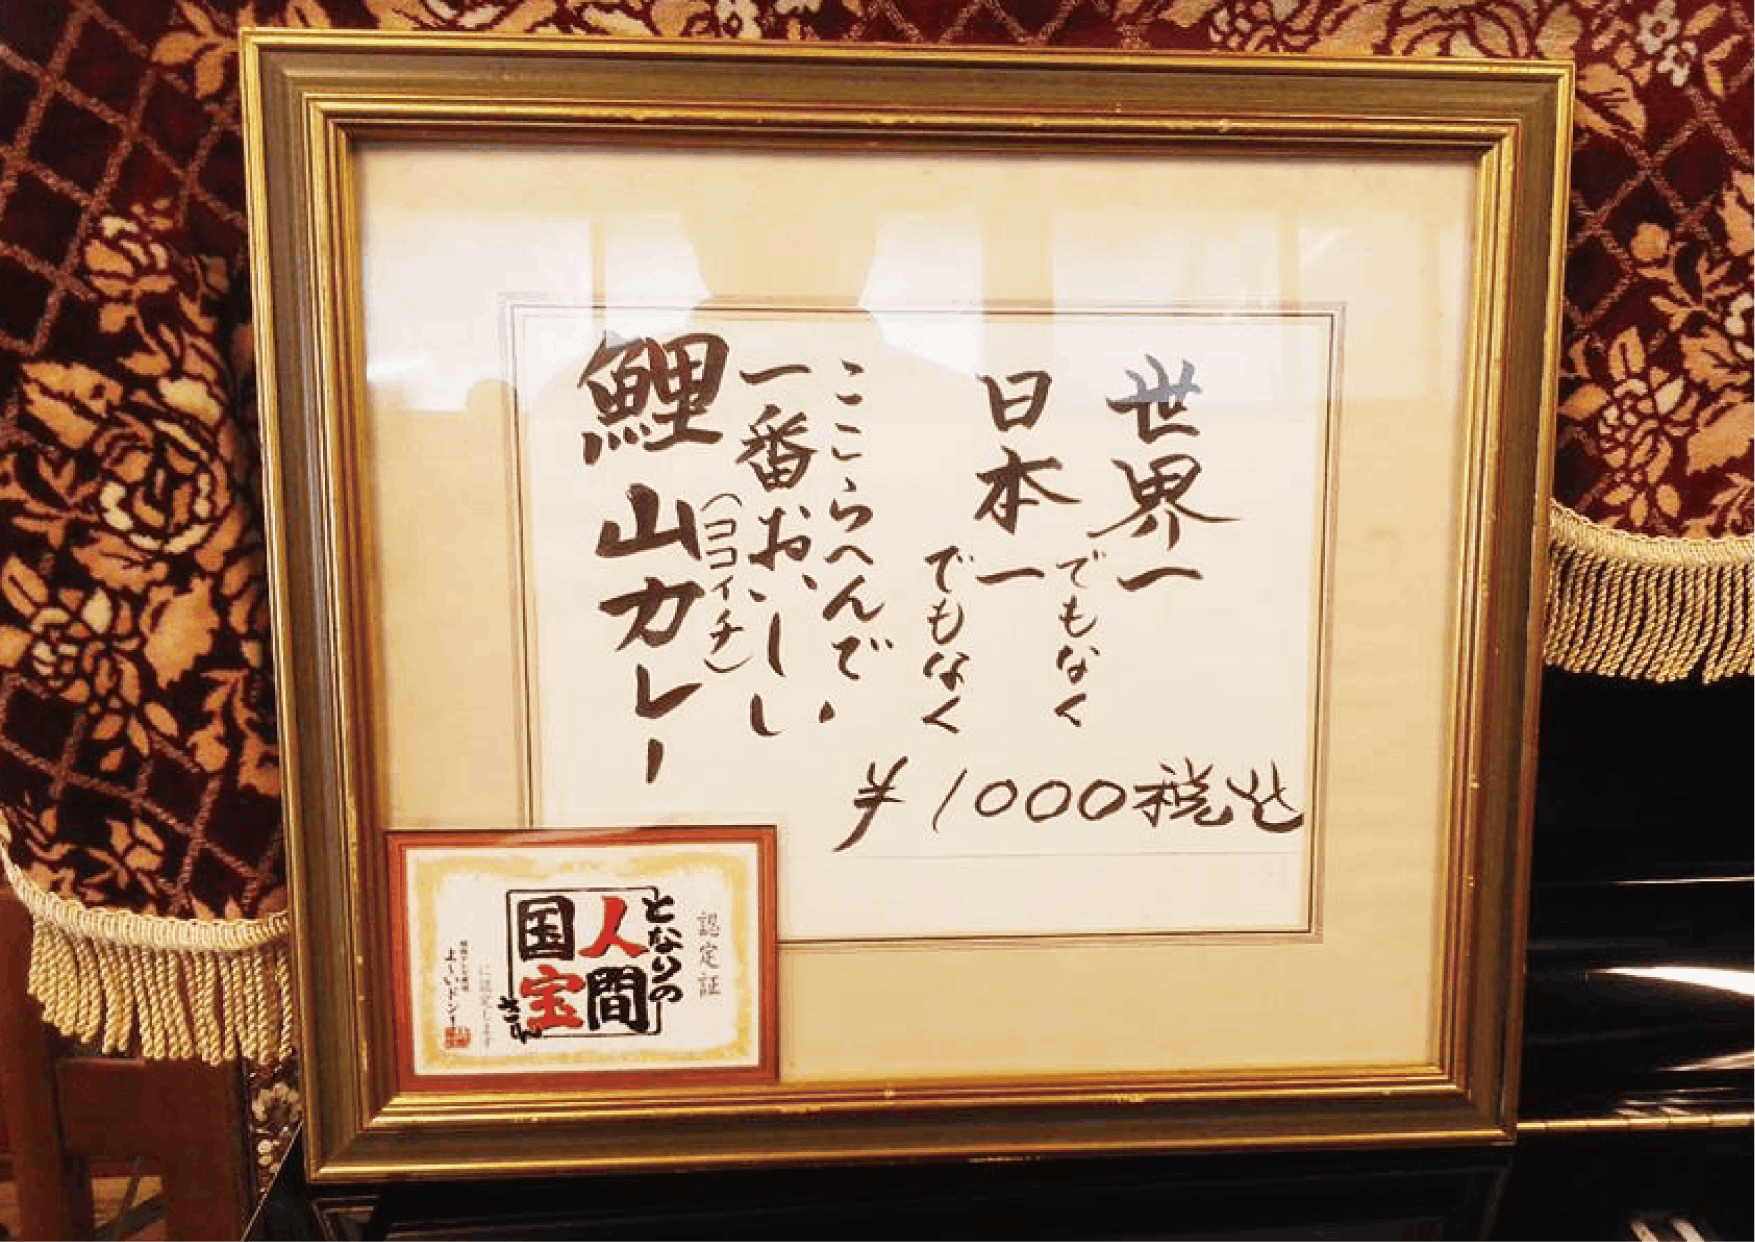 世界一でもなく
日本一でもなく
ここらへんで、
一番おいしい
(ココイチ)
鯉山カレー
¥1000税込
認定証
となりの
人間
国宝
さん
に認定します
よ〜いドン!